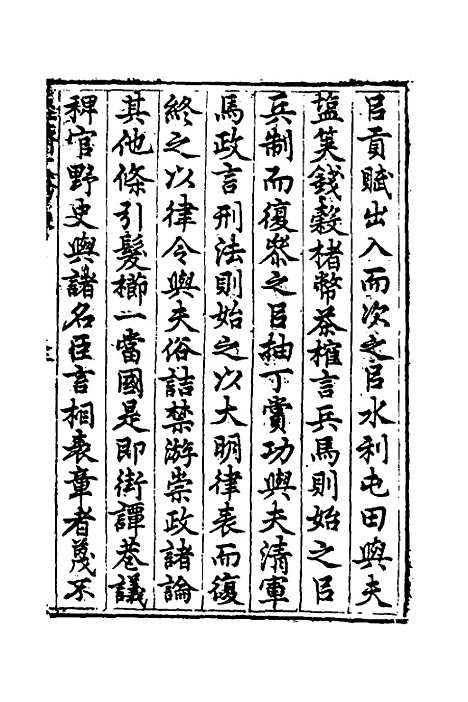 㠯貢賦出入而次之㠯水利屯田與夫
塩筴錢穀楮幣茶榷言兵馬則始之㠯
兵制而復叅之㠯抽丁賞功與夫清軍
馬政言刑法則始之以大明律表而復
終之以律令與夫俗詰禁游崇政諸論
其他條引髮櫛一當國是即街譚巷議
稗官野史與諸名臣言相表章者蔑不